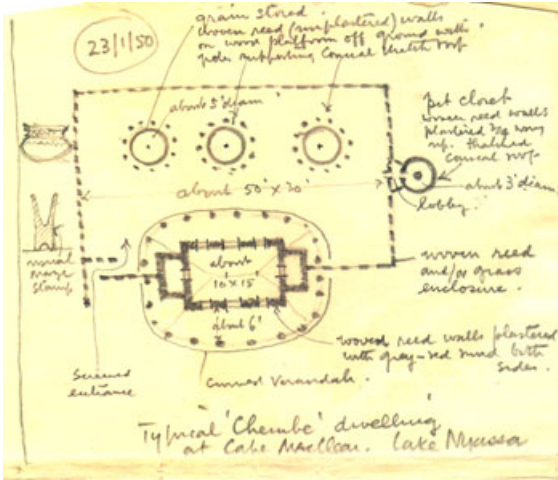 23/1/50
grain stored.
woven reed (unplastered) walls
on wood platform off ground with
poles supporting conical thatch roof
about 5' diam
pit closet
woven reed walls
plastered
thatched
conical roof
about 3' diam
lobby.
about 50' x 30'
usual
maize
stamp
about
10' x 15'
about 6'
woven reed
and/or grass
enclosure.
woved reed walls plastered
with grey-red mud both
sides.
Screened
entrance
Curved Verandah.
Typical 'Chembe' dwelling
at Cape Maclear. Lake Nyassa